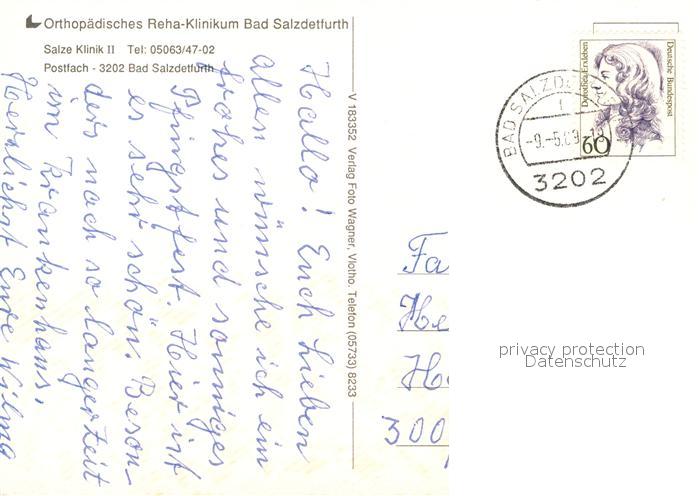 Orthopädisches Reha-Klinikum Bad Salzdetfurth
Salze Klinik II Tel: 05063/47-02
Postfach - 3202 Bad Salzdetfurth
Hallo! Euch Lieben
allen wünsche ich ein
frohes und sonniges
Pfingstfest. Hier ist
es sehr schön. Beson-
ders nach so langer Zeit
im Krankenhaus.
Herzlichst Eure Wilma
V 183352 Verlag Foto Wagner, Vlotho. Telefon (05733) 8233
Deutsche Bundespost
Dorothea Erxleben
60
BAD SALZD
1
-9.-5.89
3202
Fa
He
Ho
300
privacy protection
Datenschutz